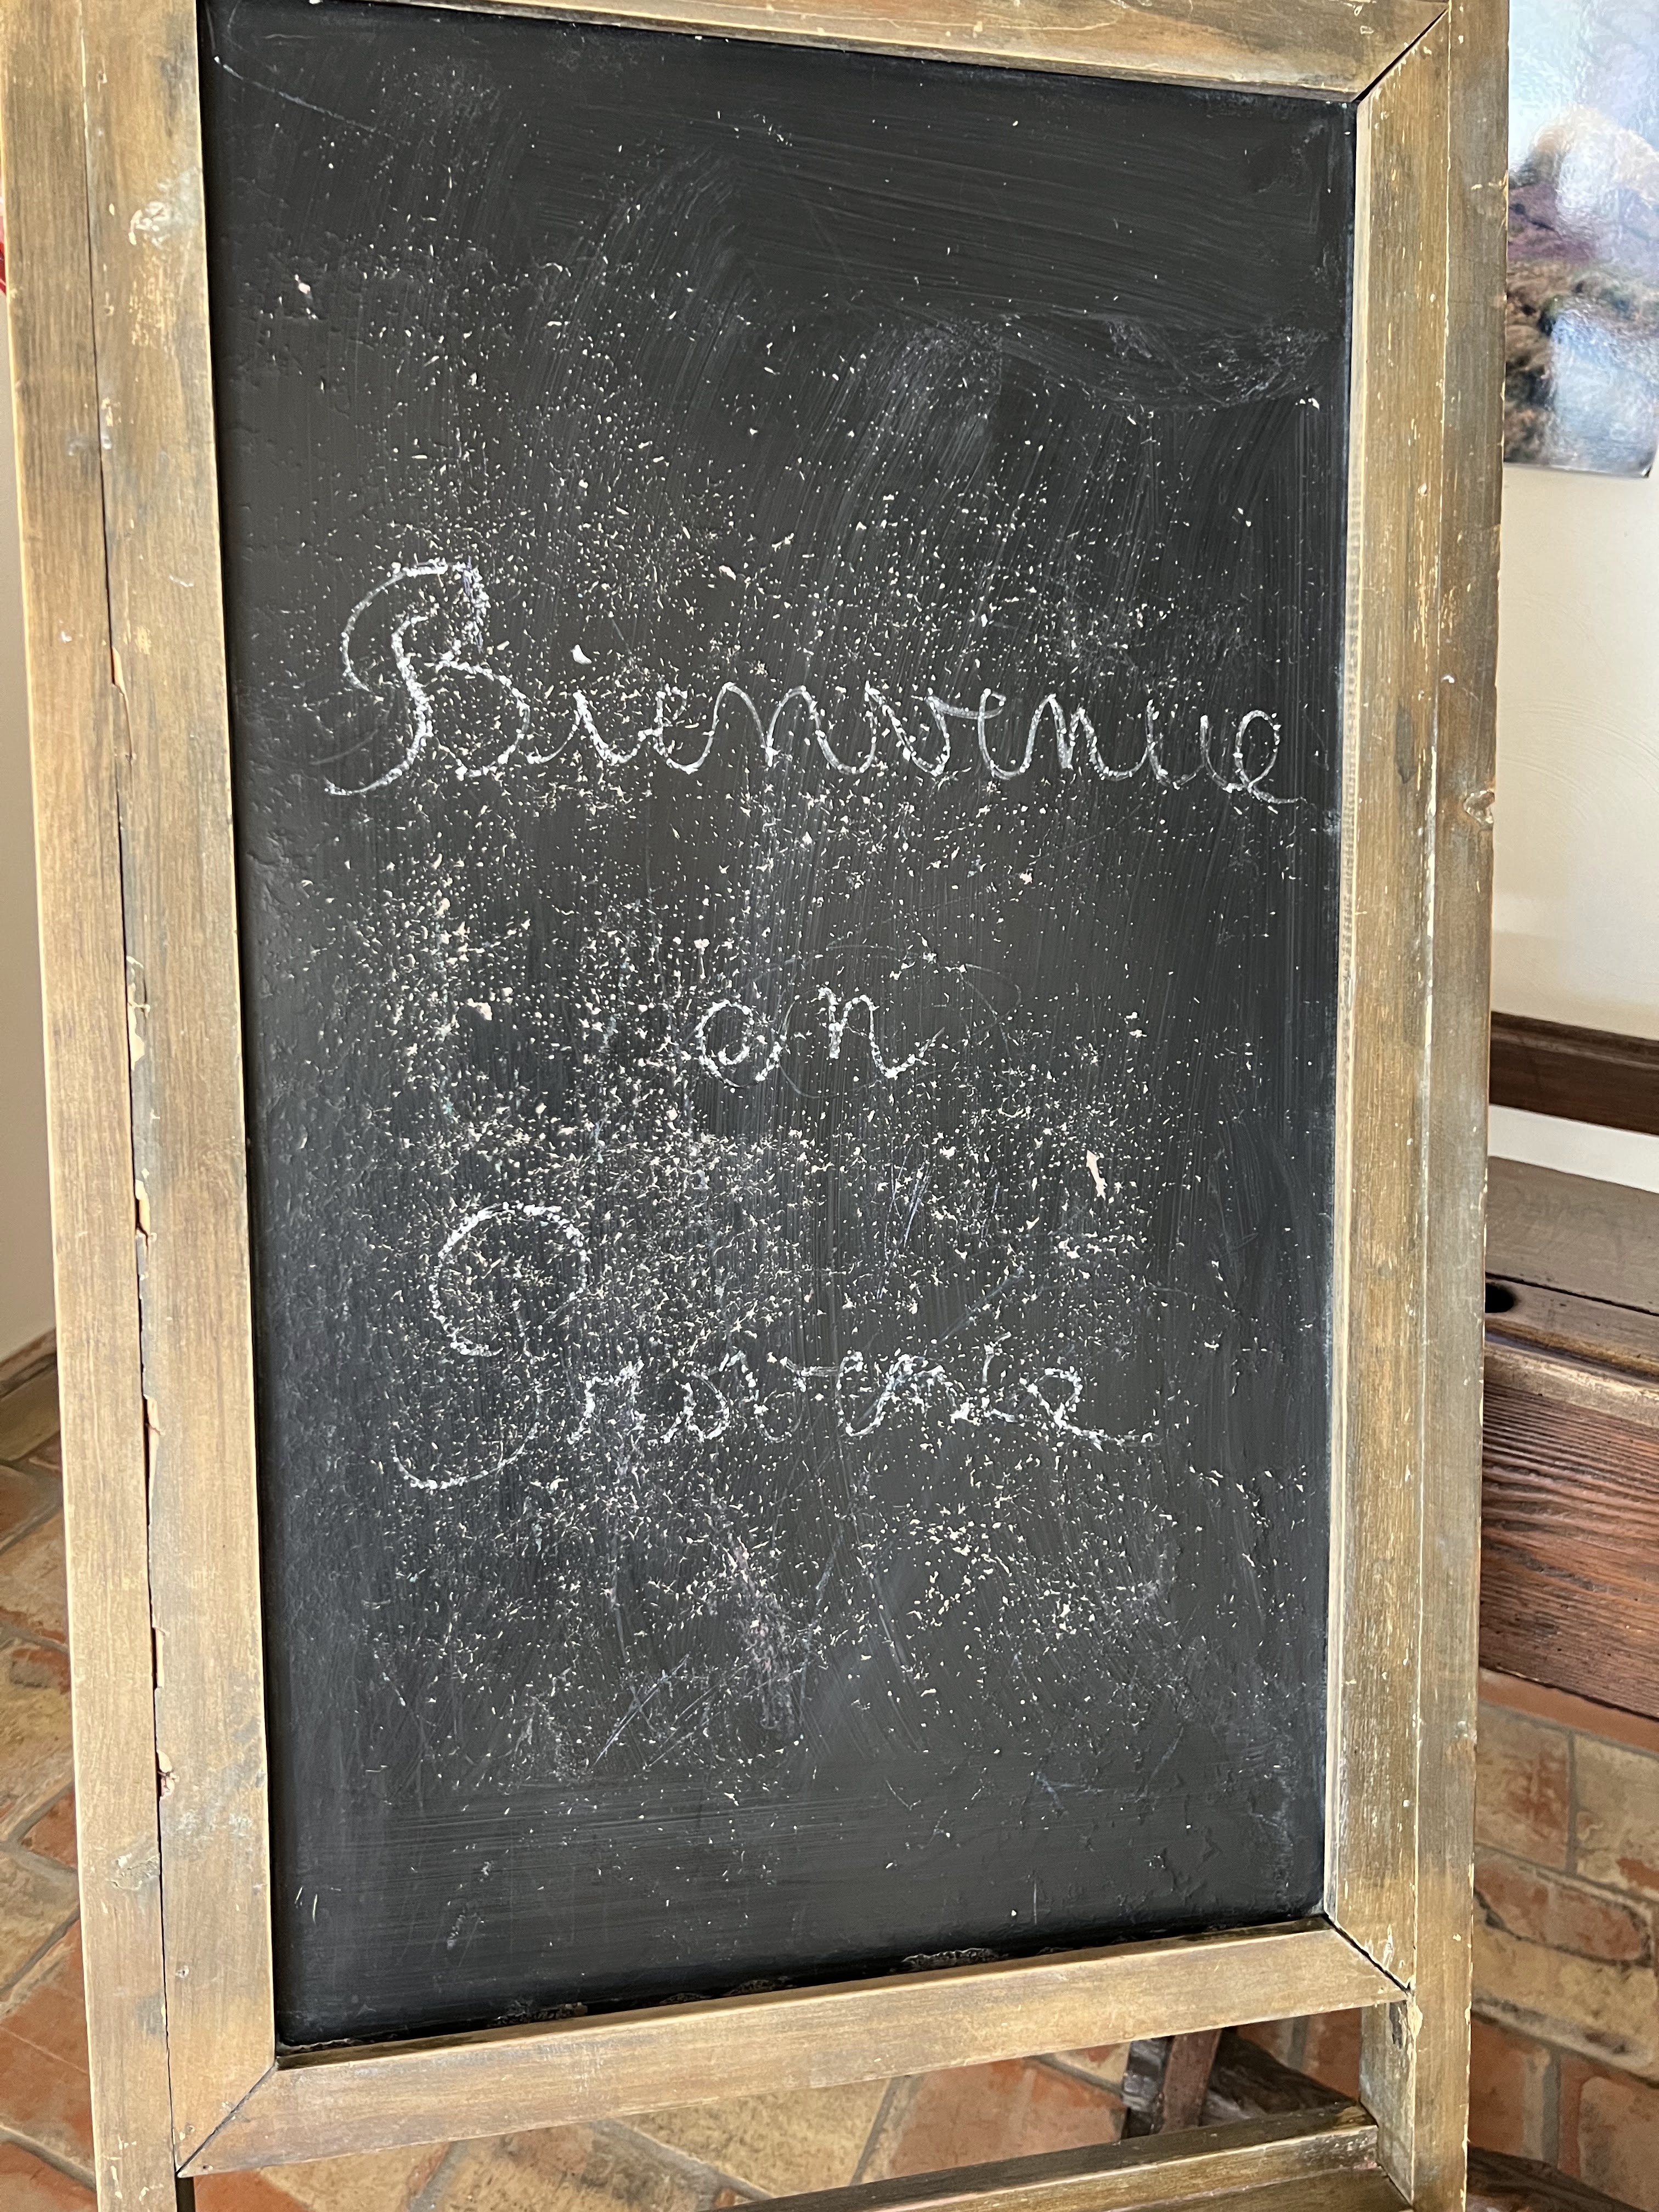 Bienvenue
en
Provence